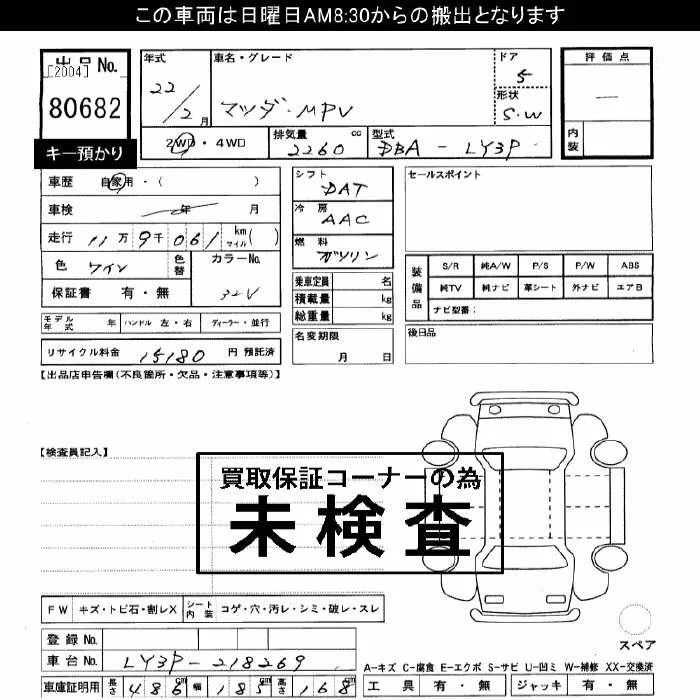 この車両は日曜日AM8:30からの搬出となります
出品No.
[2004]
80682
キー預かり
年式
22/2月
車名・グレード
マツダ・MPV
ドア
5
形状
S・W
評価点
一
内装
2WD・4WD
排気量 2260 cc
型式 DBA-LY3P
車歴 自家用・( )
車検 年 月
走行 11万9千061 km マイル( )
色 ワイン
色替
カラーNo.
32V
保証書 有・無
モデル年式 年 ハンドル 左・右 ディーラー・並行
リサイクル料金 15180 円 預託済
シフト
DAT
冷房
AAC
燃料
ガソリン
乗車定員 名
積載量 kg
総重量 kg
名変期限
月 日
セールスポイント
装備品
S/R 純A/W P/S P/W ABS
純TV 純ナビ 革シート 外ナビ エアB
ナビ型番:
後日品
【出品店申告欄(不良箇所・欠品・注意事項等)】
【検査員記入】
買取保証コーナーの為
未検査
FW キズ・トビ石・割レX シート内装 コゲ・穴・汚レ・シミ・破レ・スレ
登録No.
車台No. LY3P-218269
車庫証明用 長さ 486cm 幅 185cm 高さ 168cm
スペア
A-キズ C-腐食 E-エクボ S-サビ U-凹ミ W-補修 XX-交換済
工具 有・無 ジャッキ 有・無